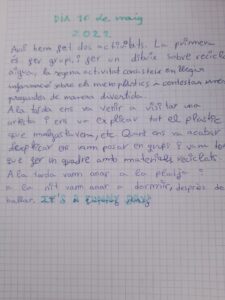 DIA 16 de maig
2022
Avui hem fet dos activitats. La primera
és fer grups i fer un dibuix sobre reciclar
aigua, la segona activitat consisteix en llegir
informació sobre els microplàstics a contestar unes
preguntes de manera divertida.
A la tarda ens va venir a visitar una
artista i ens va explicar tot el plàstic
que malgastavem, etc. Quant ens va acabar
d'explicar ens vam posar en grups i vam tenir
que fer un quadre amb materials reciclats.
A la tarda vam anar a la platja i
a la nit vam anar a dormir, després de
ballar. IT'S a